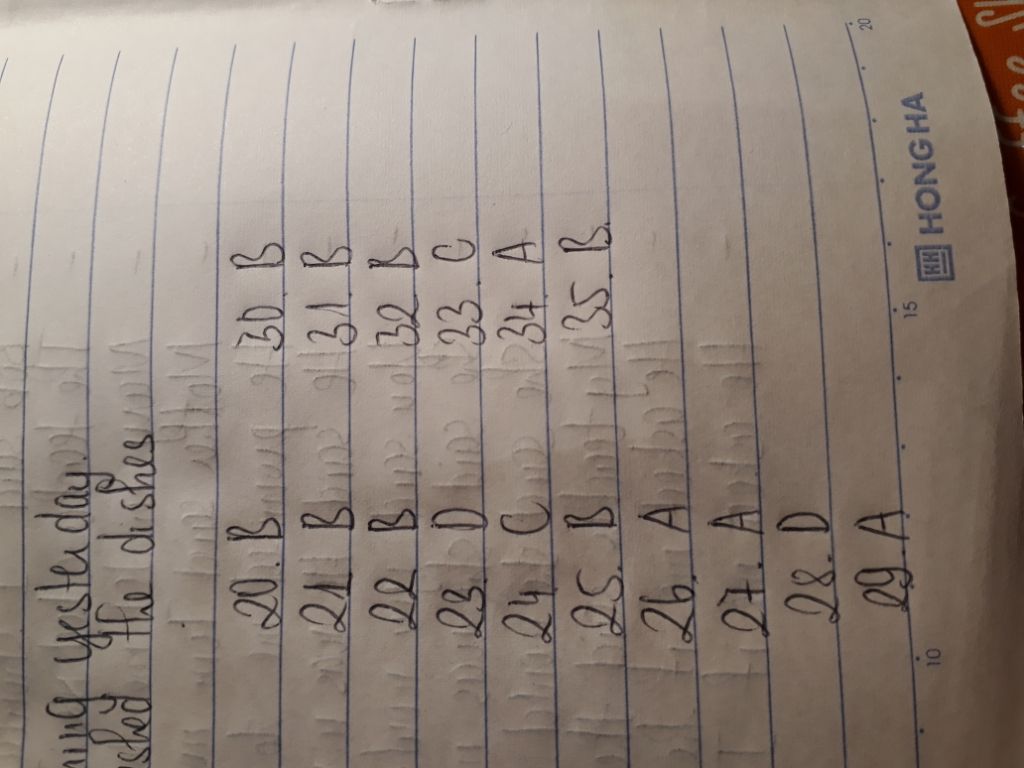 yesterday
the dishes
20. B 30 B
21. B 31. B
22 B 32 B
23. D 33. C
24. C 34 A
25. B 35. B.
26. A
27. A
28. D
29. A
10 15 20
HH HONG HA